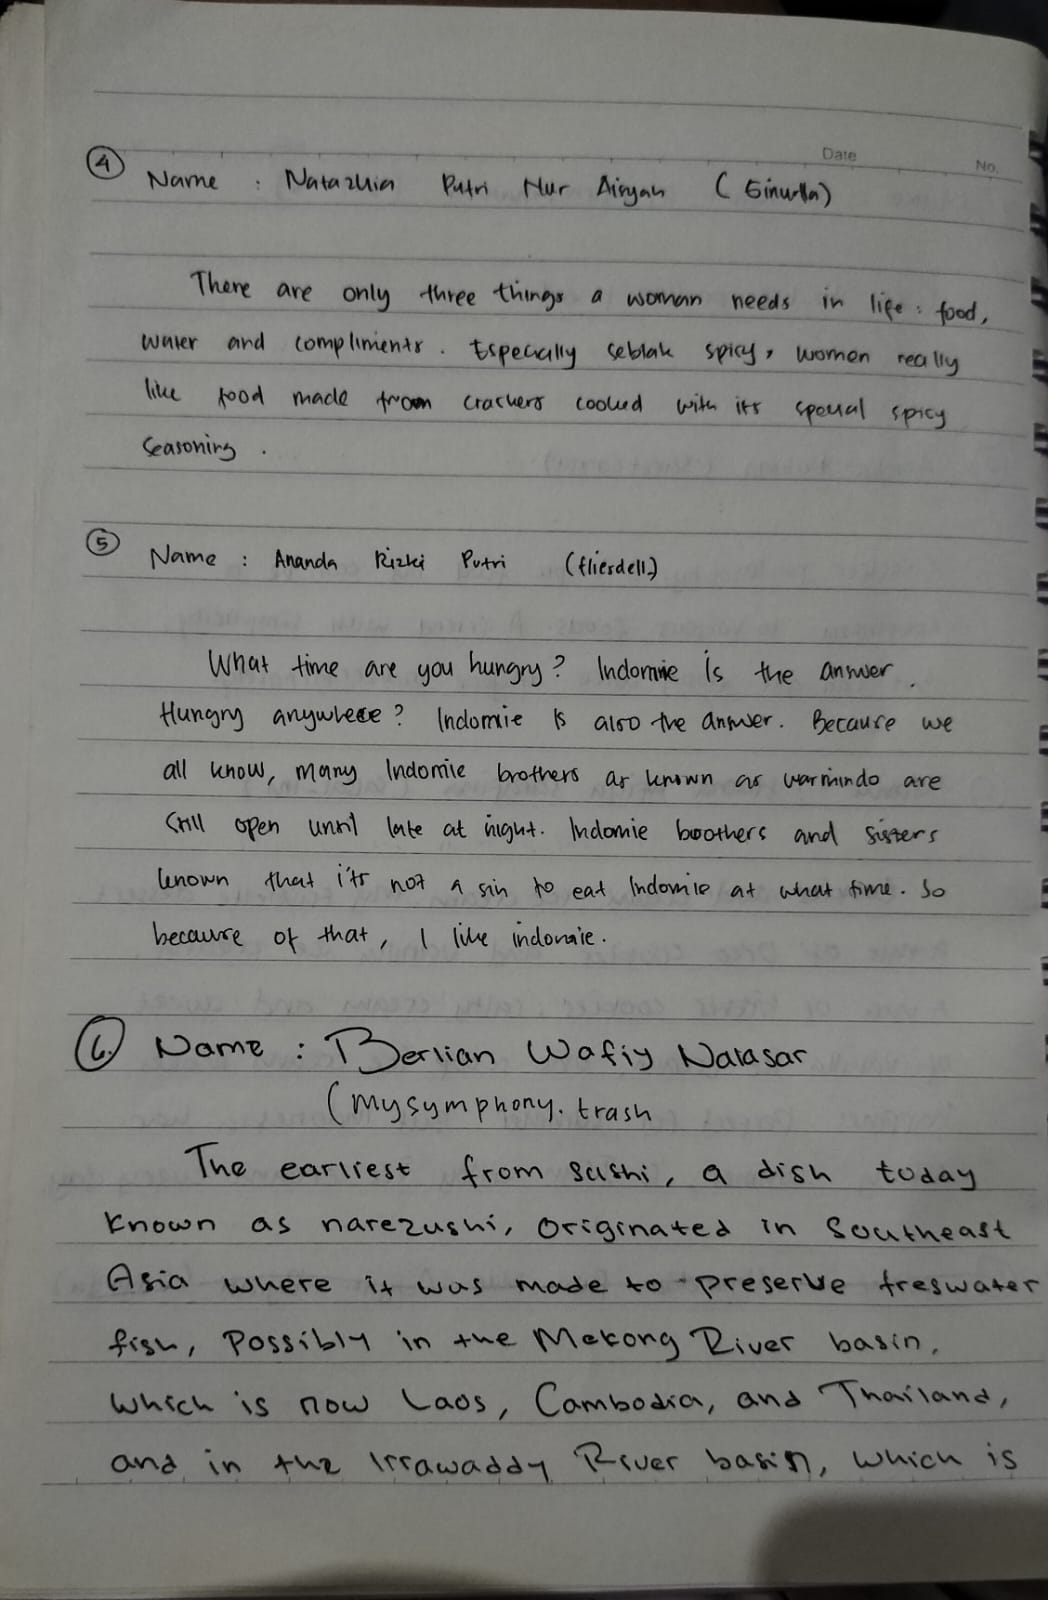 Date
No.
4 Name : Natazhia Putri Nur Aisyah (
There are only three things a woman needs in life : food,
water and compliments. Especially seblak spicy, women really
like food made from crackers cooked with its special spicy
seasoning.
5 Name : Ananda Rizki Putri (fliesdell)
What time are you hungry? Indomie is the answer.
Hungry anywhere? Indomie is also the answer. Because we
all know, many Indomie brothers as known as warmindo are
still open until late at night. Indomie boothers and sisters
known that it's not a sin to eat Indomie at what time. So
because of that, I like indomie.
6. Name : Berlian Wafiy Narasar
(mysymphony.trash
The earliest from sushi, a dish today
known as narezushi, originated in Southeast
Asia where it was made to preserve freswater
fish, Possibly in the Mekong River basin,
which is now Laos, Cambodia, and Thailand,
and in the Irrawaddy River basin, which is